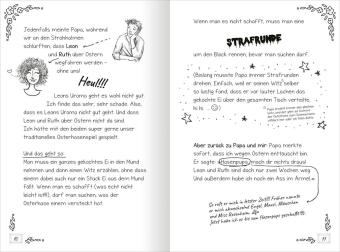 Jedenfalls meinte Papa, während
wir an den Strohhalmen
schlürften, dass Leon
und Ruth über Ostern
wegfahren werden –
ohne uns!
Heul!!!
Leons Uroma geht es wohl nicht gut.
Ich finde das sehr, sehr schade. Also,
dass es Leons Uroma nicht gut geht. Und dass
Leon und Ruth über Ostern nicht da sind.
Ich hätte mit den beiden super gerne unser
traditionelles Osterhasenspiel gespielt.
Und das geht so:
Man muss ein ganzes gekochtes Ei in den Mund
nehmen und dann einen Witz erzählen, ohne dass
einem dabei auch nur ein Stück Ei aus dem Mund
fällt. Wenn man es schafft (was echt nicht
leicht ist!), darf man aussuchen, was der
Osterhase einem versteckt hat.
10
Wenn man es nicht schafft, muss man eine
STRAFRUNDE
um den Block rennen, bevor man suchen darf.
(Bislang musste Papa immer Strafrunden
drehen. Einfach, weil er seinen Witz selber
so lustig fand, dass er vor lauter Lachen das
gekochte Ei über den gesamten Tisch verteilte,
hi hi
Aber zurück zu Papa und mir: Papa merkte
sofort, dass ich wegen Ostern enttäuscht bin.
Er sagte: „Hasenpups, mach dir nichts draus!
Leon und Ruth sind doch nur zwei Wochen weg.
Und außerdem habe ich noch ein Ass im Ärmel.“
So ruft er mich in letzter Zeit!! Früher nannte
er mich abwechselnd Engel, Mausi, Mäuschen
und Miss Rosenhain.
Jetzt habe ich es bis zum Hasenpups geschafft!!!
11